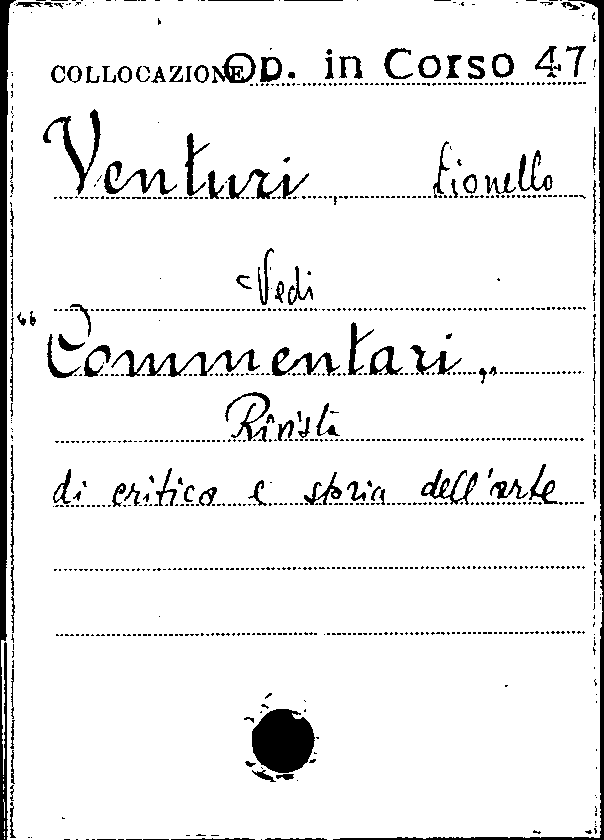 COLLOCAZIONE Op. in Corso 47
Venturi, Lionello
Vedi
“Commentari„
Rivista
di critica e storia dell'arte